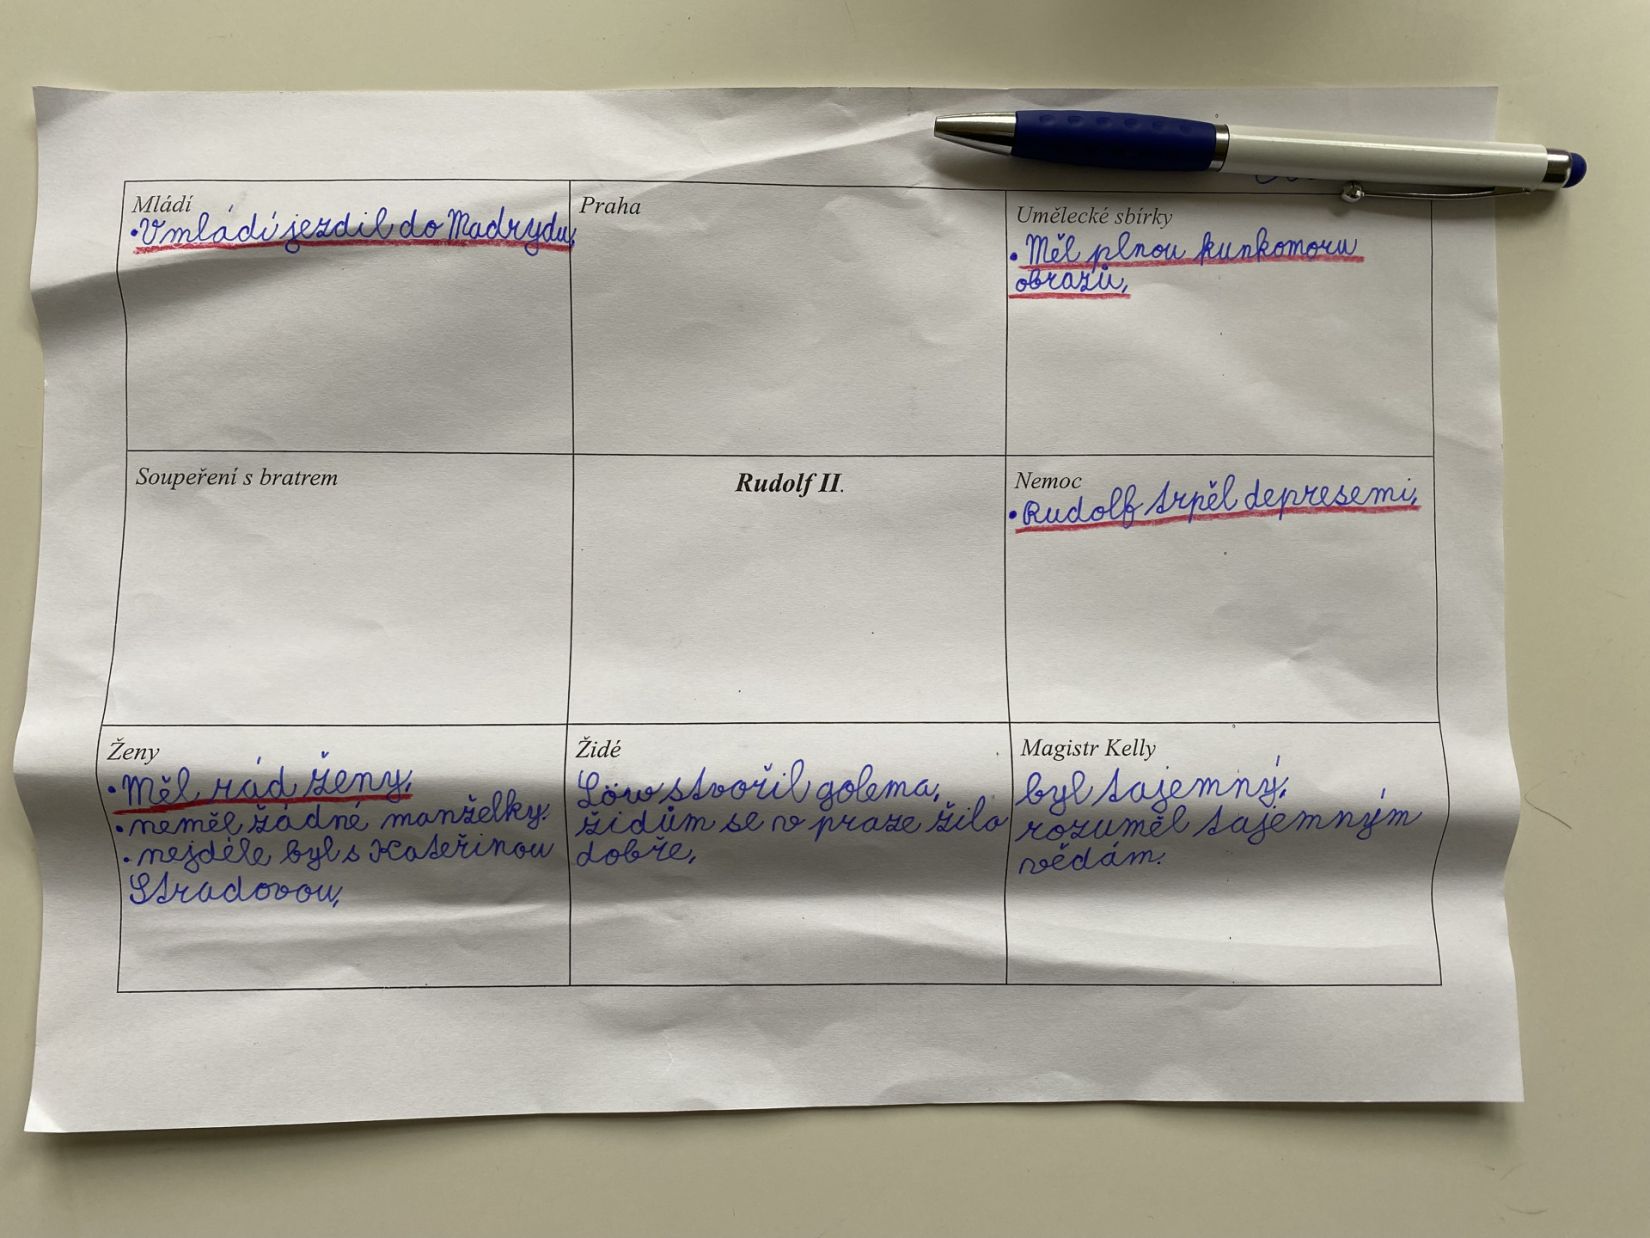 Mládí
• V mládí jezdil do Madrydu.
Praha
Umělecké sbírky
• Měl plnou kunkomoru
obrazů.
Soupeření s bratrem
Rudolf II.
Nemoc
• Rudolf trpěl depresemi.
Ženy
• Měl rád ženy.
• neměl žádné manželky.
• nejdéle byl s Kateřinou
Stradovou.
Židé
Löw stvořil golema.
židům se v praze žilo
dobře.
Magistr Kelly
byl tajemný.
rozuměl tajemným
vědám.